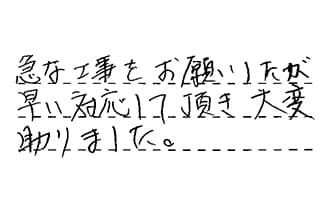 急な工事をお願いしたが
早い対応して頂き大変
助りました。